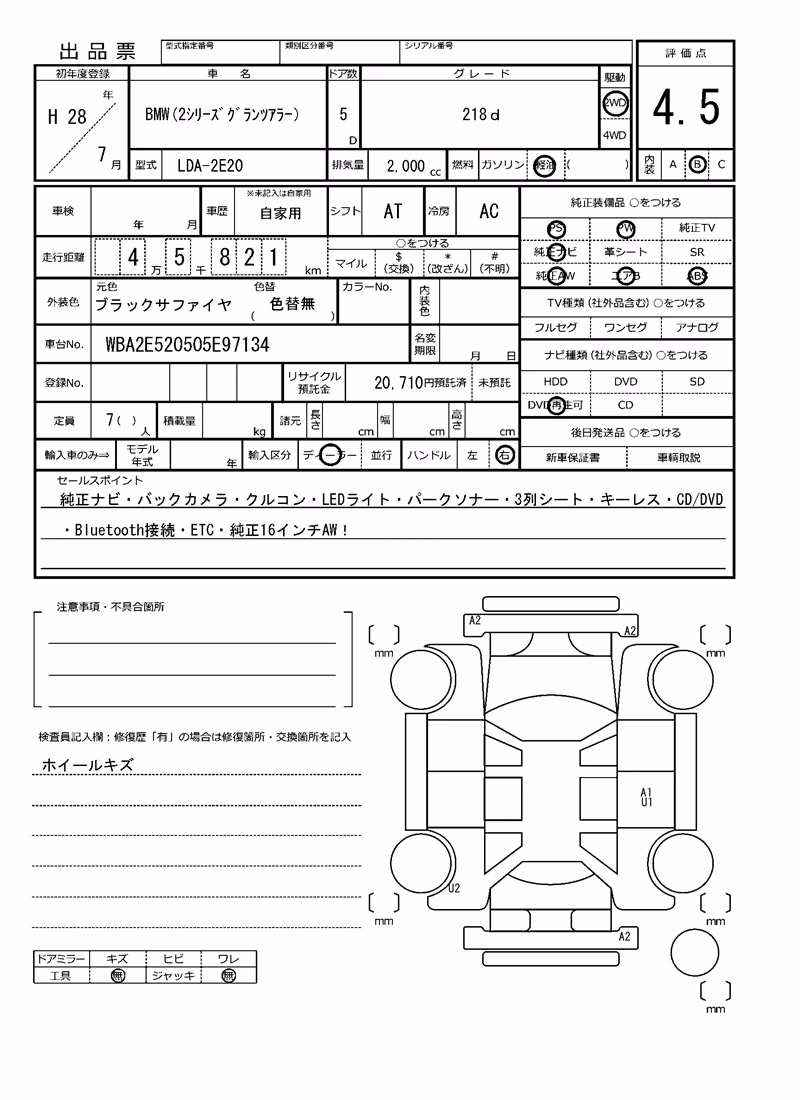 出品票
型式指定番号 類別区分番号 シリアル番号
評価点
4.5
内装 A B C
初年度登録 車名 ドア数 グレード 駆動
H 28 年 7 月
BMW(2シリーズグランツアラー) 5 D 218d 2WD 4WD
型式 LDA-2E20 排気量 2,000 cc 燃料 ガソリン 軽油 ( )
車検 年 月 車歴 ※未記入は自家用 自家用 シフト AT 冷房 AC
走行距離 4万 5千 8 2 1 km
○をつける
マイル $(交換) *(改ざん) #(不明)
外装色 元色 ブラックサファイヤ 色替 ( 色替無 ) カラーNo. 内装色
車台No. WBA2E520505E97134 名変期限 月 日
登録No. リサイクル預託金 20,710円預託済 未預託
定員 7( )人 積載量 kg 諸元 長さ cm 幅 cm 高さ cm
輸入車のみ⇒ モデル年式 年 輸入区分 ディーラー 並行 ハンドル 左 右
純正装備品 ○をつける
PS PW 純正TV
純正ナビ 革シート SR
純正AW エアB ABS
TV種類(社外品含む)○をつける
フルセグ ワンセグ アナログ
ナビ種類(社外品含む)○をつける
HDD DVD SD
DVD再生可 CD
後日発送品 ○をつける
新車保証書 車輌取説
セールスポイント
純正ナビ・バックカメラ・クルコン・LEDライト・パークソナー・3列シート・キーレス・CD/DVD
・Bluetooth接続・ETC・純正16インチAW!
注意事項・不具合箇所
検査員記入欄:修復歴「有」の場合は修復箇所・交換箇所を記入
ホイールキズ
ドアミラー キズ ヒビ ワレ
工具 無 ジャッキ 無
A2
A2
mm
mm
A1
U1
U2
mm
mm
A2
mm